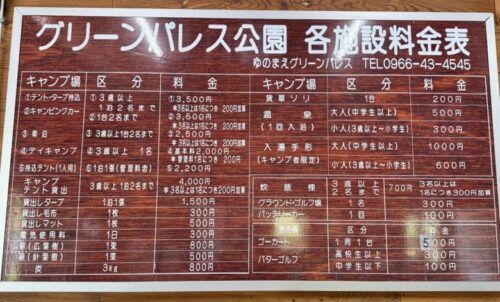 グリーンパレス公園 各施設料金表
ゆのまえグリーンパレス TEL0966-43-4545
キャンプ場 区分 料金
①テント・タープ持込 ①3歳以上 ①3,500円
②キャンピングカー 1泊2名まで *3名以上は1名につき200円加算
②1台2名まで ②3,500円
*3名以上は1名につき200円加算
③車泊 ③3歳以上1台2名まで ③2,500円
*3名以上は1名につき200円加算
④デイキャンプ ④3歳以上 1名 ④基本料2,000円
*管理料1名につき200円
⑤持込テント(1人用) ⑤1泊1張(管理料含) ⑤2,200円
キャンプ
テント貸出 3歳以上1泊2名まで 4,000円
*3名以上は1名につき200円加算
貸出しタープ 1泊1張 1,500円
貸出し毛布 1枚 300円
貸出しマット 1枚 500円
電気使用料 1日 300円
(広葉樹) 1束 800円
(針葉樹) 1束 500円
炭 3kg 800円
キャンプ場 区分 料金
貸草ソリ 1台 200円
温泉 大人(中学生以上) 500円
(1回入浴) 小人(3歳以上~小学生) 300円
入湯手形 大人(中学生以上) 1000円
(キャンプ者限定) 小人(3歳以上~小学生) 600円
炊飯棟 3歳以上 2名まで 700円 3名以上は
1名につき300円加算
グラウンド・ゴルフ場 1名 300円
バッテリーカー 1回 100円
ゴーカート 1周1台 500円
パターゴルフ 高校生以上 300円
中学生以下 100円